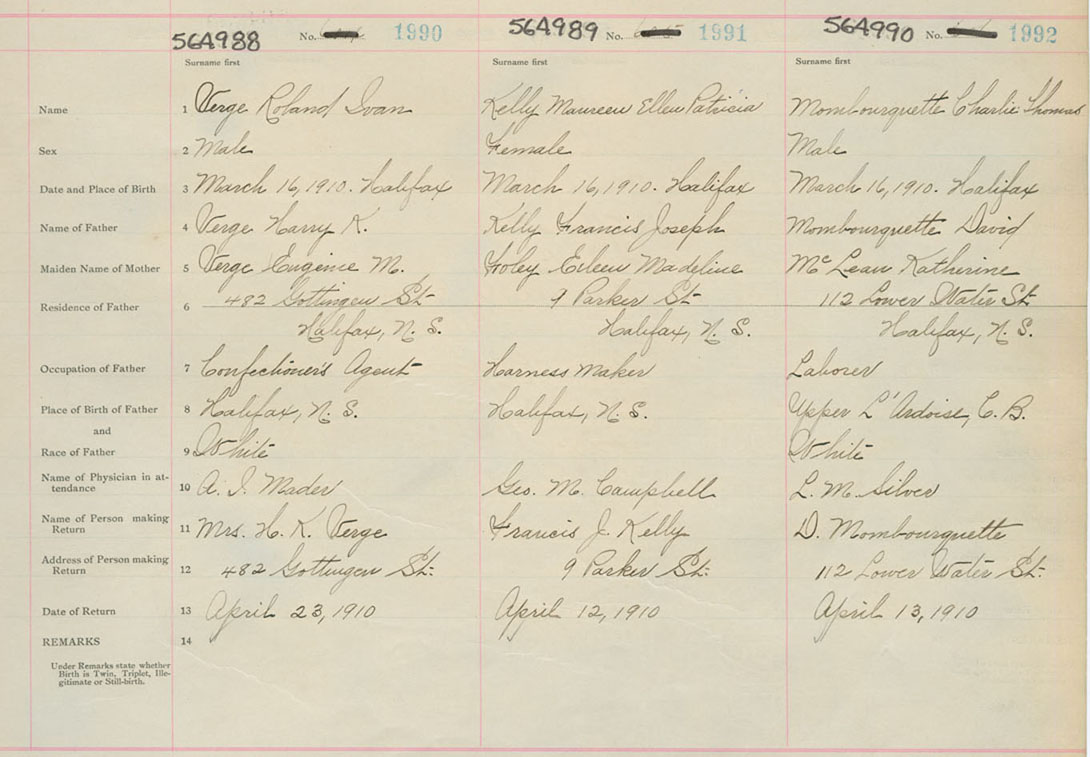 564988 No. 1990 564989 No. 1991 564990 No. 1992
Surname first Surname first Surname first
Name 1 Verge Roland Ivan Kelly Maureen Ellen Patricia Mombourquette Charlie Thomas
Sex 2 Male Female Male
Date and Place of Birth 3 March 16, 1910. Halifax March 16, 1910. Halifax March 16, 1910. Halifax
Name of Father 4 Verge Harry K. Kelly Francis Joseph Mombourquette David
Maiden Name of Mother 5 Verge Eugenie M. Foley Eileen Madeline McLean Katherine
Residence of Father 6 482 Gottingen St. 9 Parker St. 112 Lower Water St.
Halifax, N. S. Halifax, N. S. Halifax, N. S.
Occupation of Father 7 Confectioner's Agent Harness Maker Laborer
Place of Birth of Father 8 Halifax, N. S. Halifax, N. S. Upper L'Ardoise, C. B.
and
Race of Father 9 White White
Name of Physician in at-
tendance 10 A. I. Mader Geo. M. Campbell L. M. Silver
Name of Person making
Return 11 Mrs. H. K. Verge Francis J. Kelly D. Mombourquette
Address of Person making
Return 12 482 Gottingen St. 9 Parker St. 112 Lower Water St.
Date of Return 13 April 23, 1910 April 12, 1910 April 13, 1910
REMARKS 14
Under Remarks state whether
Birth is Twin, Triplet, Ille-
gitimate or Still-birth.